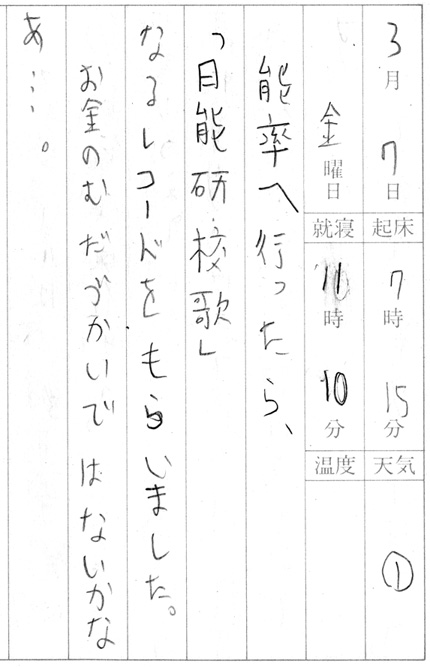 3月7日 起床 7時15分 天気 ①
金曜日 就寝 11時10分 温度
能率へ行ったら、
「日能研校歌」
なるレコードをもらいました。
お金のむだづかいではないかな
あ…。